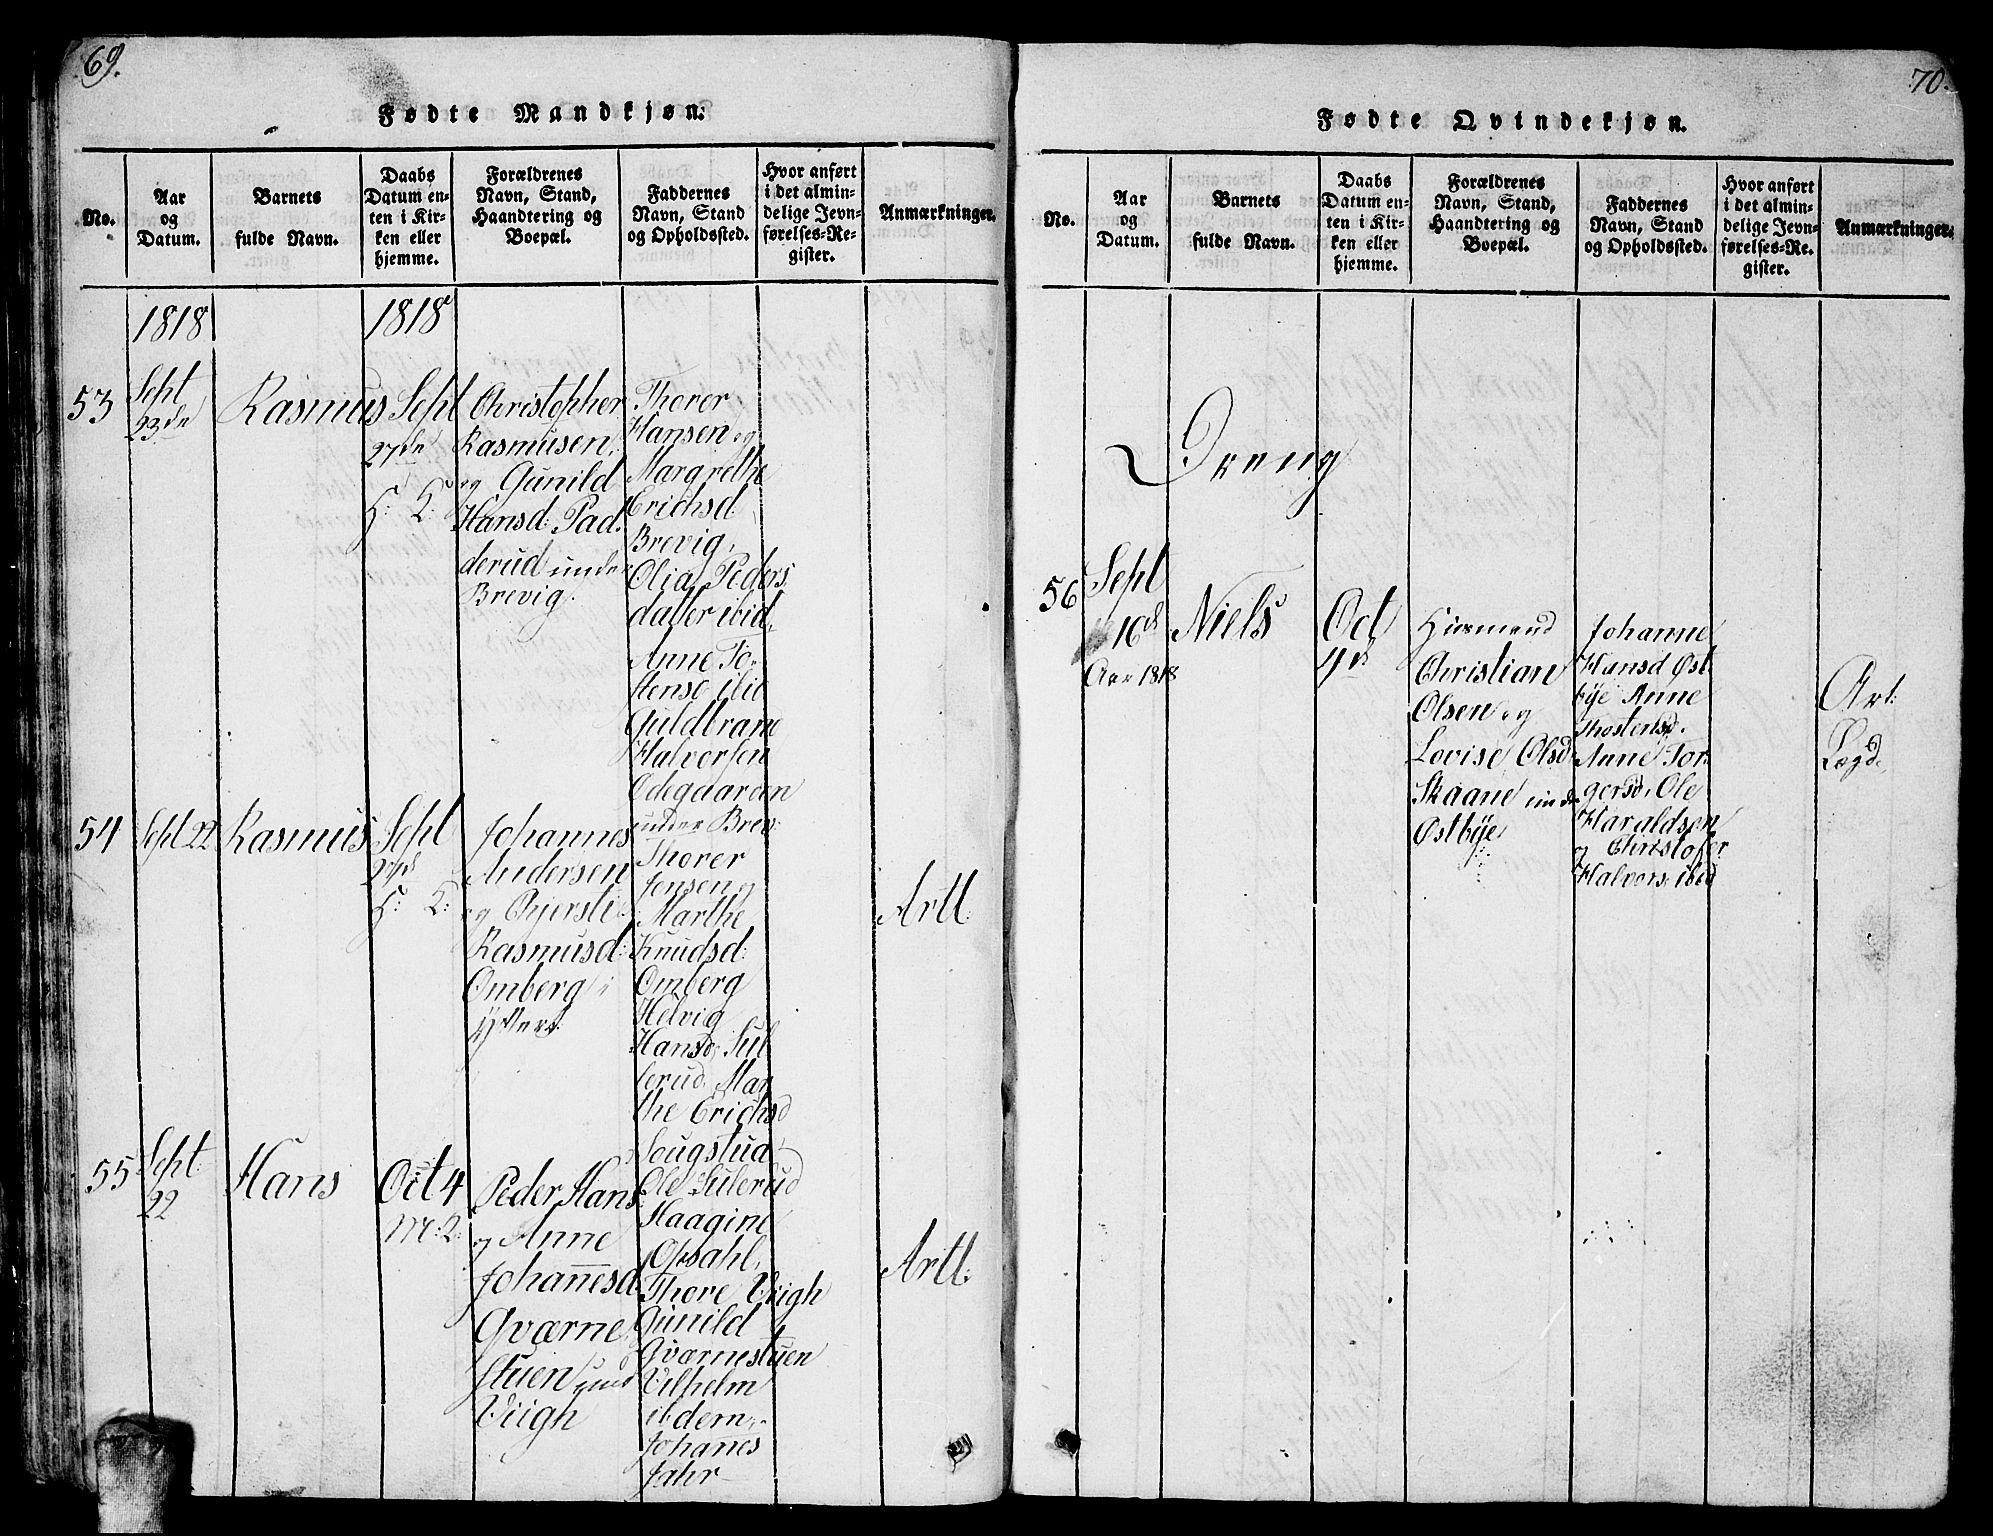 69.
Fødte Mandkjøn:
No.
Aar
og
Datum.
Barnets
fulde Navn.
Daabs
Datum en-
ten i Kir-
ken eller
hjemme.
Forældrenes
Navn, Stand,
Haandtering og
Boepæl.
Faddernes
Navn, Stand
og Opholdssted.
Hvor anført
i det almin-
delige Jevn-
førelses-Re-
gister.
Anmærkninger.
1818
1818
53
Sept
23de
Rasmus
Sept
27de
H: K:
Christopher
Rasmusen,
og Gunild
Hansd: Pad-
derud under
Brevig.
Thorer
Hansen og
Margrethe
Erichsd
Brevig,
Olia Peders
datter ibid,
Anne To-
stensd ibid
Guldbrand
Halvorsen
Ødegaarden
under Brev:
54
Sept 22
Rasmus
Sept
27de
H: K:
Johannes
Andersen
og Chjersti
Rasmusd:
Omberg i
Thorer
Jensen og
Marthe
Knudsd:
Omberg
Helvig
Hansd, Sul
lerud, Mar
the Erichsd
Sougstua,
Ole Sulerud
Artl
55
Sept:
22
Hans
Oct 4
M: K:
Peder Hans
og Anne
Johanesd
Qværne
stuen und
Viigh
Haagine
Opsahl,
Thore Viigh
Gunild
Qværnestuen
Vilhelm
ibdem,
Johanes
Jahr
Artl:
70.
Fødte Qvindekjøn.
No.
Aar
og
Datum.
Barnets
fulde Navn.
Daabs
Datum en-
ten i Kir-
ken eller
hjemme.
Forældrenes
Navn, Stand,
Haandtering og
Boepæl.
Faddernes
Navn, Stand
og Opholdssted.
Hvor anført
i det almin-
delige Jevn-
førelses-Re-
gister.
Anmærkninger.
Dreng
56
Sept
16d
Aar 1818
Niels
Oct
4d
Huusmand
Christian
Olsen og
Lovise Olsd
Skaane under
Østbye,
Johanne
Hansd Øst
bye Anne
Thostensd.
Anne Tor
gersd, Ole
Haraldsen
og Christofer
Halvors: ibid
Art:
Lægd,